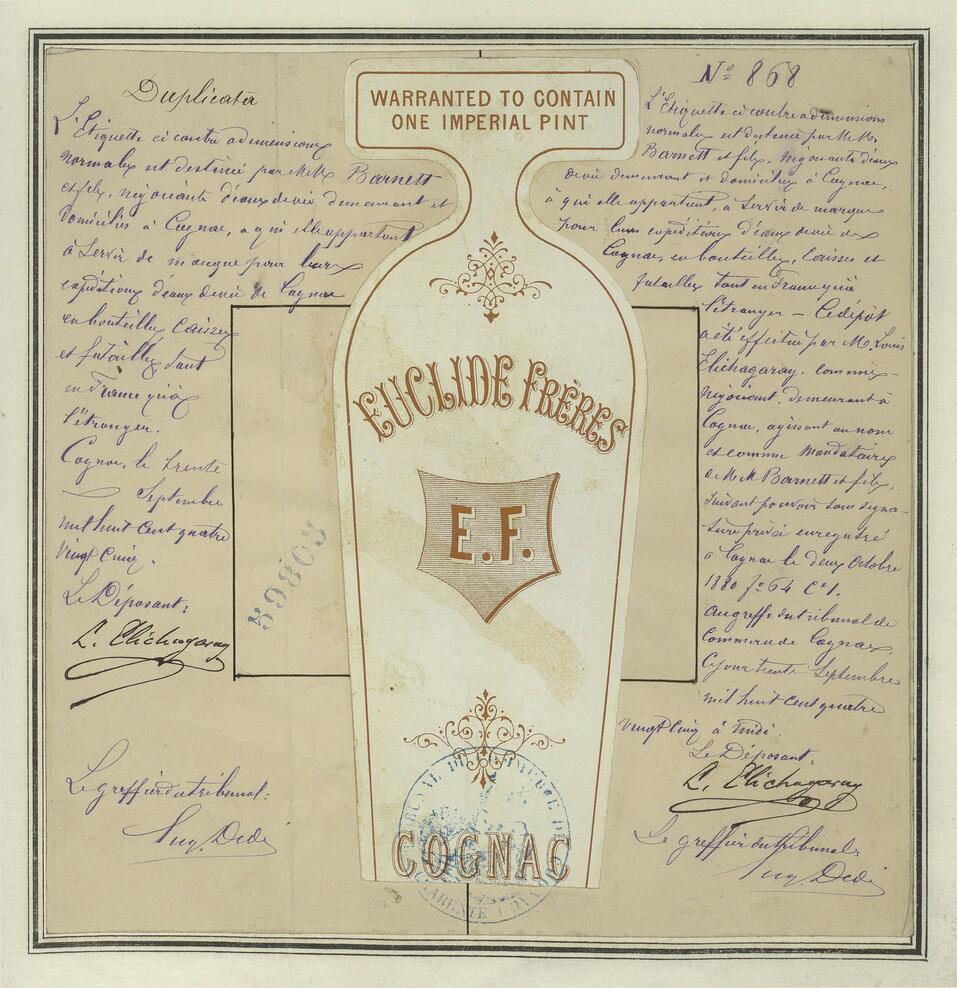 Duplicata
L'Etiquette ci contre a dimensions
normales est destinée par M.M. Barnett
et fils, négociants d'eaux de vie, demeurant et
domiciliés à Cognac, a qui elle appartient
à servir de marque pour leurs
expéditions d'eaux de vie de Cognac
en bouteilles, caisses
et futailles tant
en France qu'à
l'étranger.
Cognac, le trente
Septembre
mil huit cent quatre
vingt cinq.
Le Déposant:
L. Elichagaray
Le greffier du tribunal:
Aug. Dedé
WARRANTED TO CONTAIN
ONE IMPERIAL PINT
EUCLIDE FRÈRES
E.F.
COGNAC
TRIBUNAL DE COMMERCE DE
COGNAC
CHARENTE
59803
No 868
L'Etiquette ci contre a dimensions
normales est destinée par M.M.
Barnett et fils, négociants d'eaux
de vie demeurant et domiciliés à Cognac,
à qui elle appartient, a servir de marque
pour leurs expéditions d'eaux de vie de
Cognac, en bouteilles, caisses et
futailles tant en France qu'à
l'étranger – Le dépôt
a été effectué par M. Louis
Elichagaray. commis-
négociant, demeurant à
Cognac, agissant au nom
et comme mandataire
de M.M. Barnett et fils,
suivant pouvoir sous signa-
ture privée enregistré
à Cognac le deux Octobre
1880 fo 64 Ce 1.
au greffe du tribunal de
Commerce de Cognac,
Ce jour trente Septembre
mil huit cent quatre
vingt cinq à midi.
Le Déposant:
L. Elichagaray
Le greffier du tribunal:
Aug. Dedé